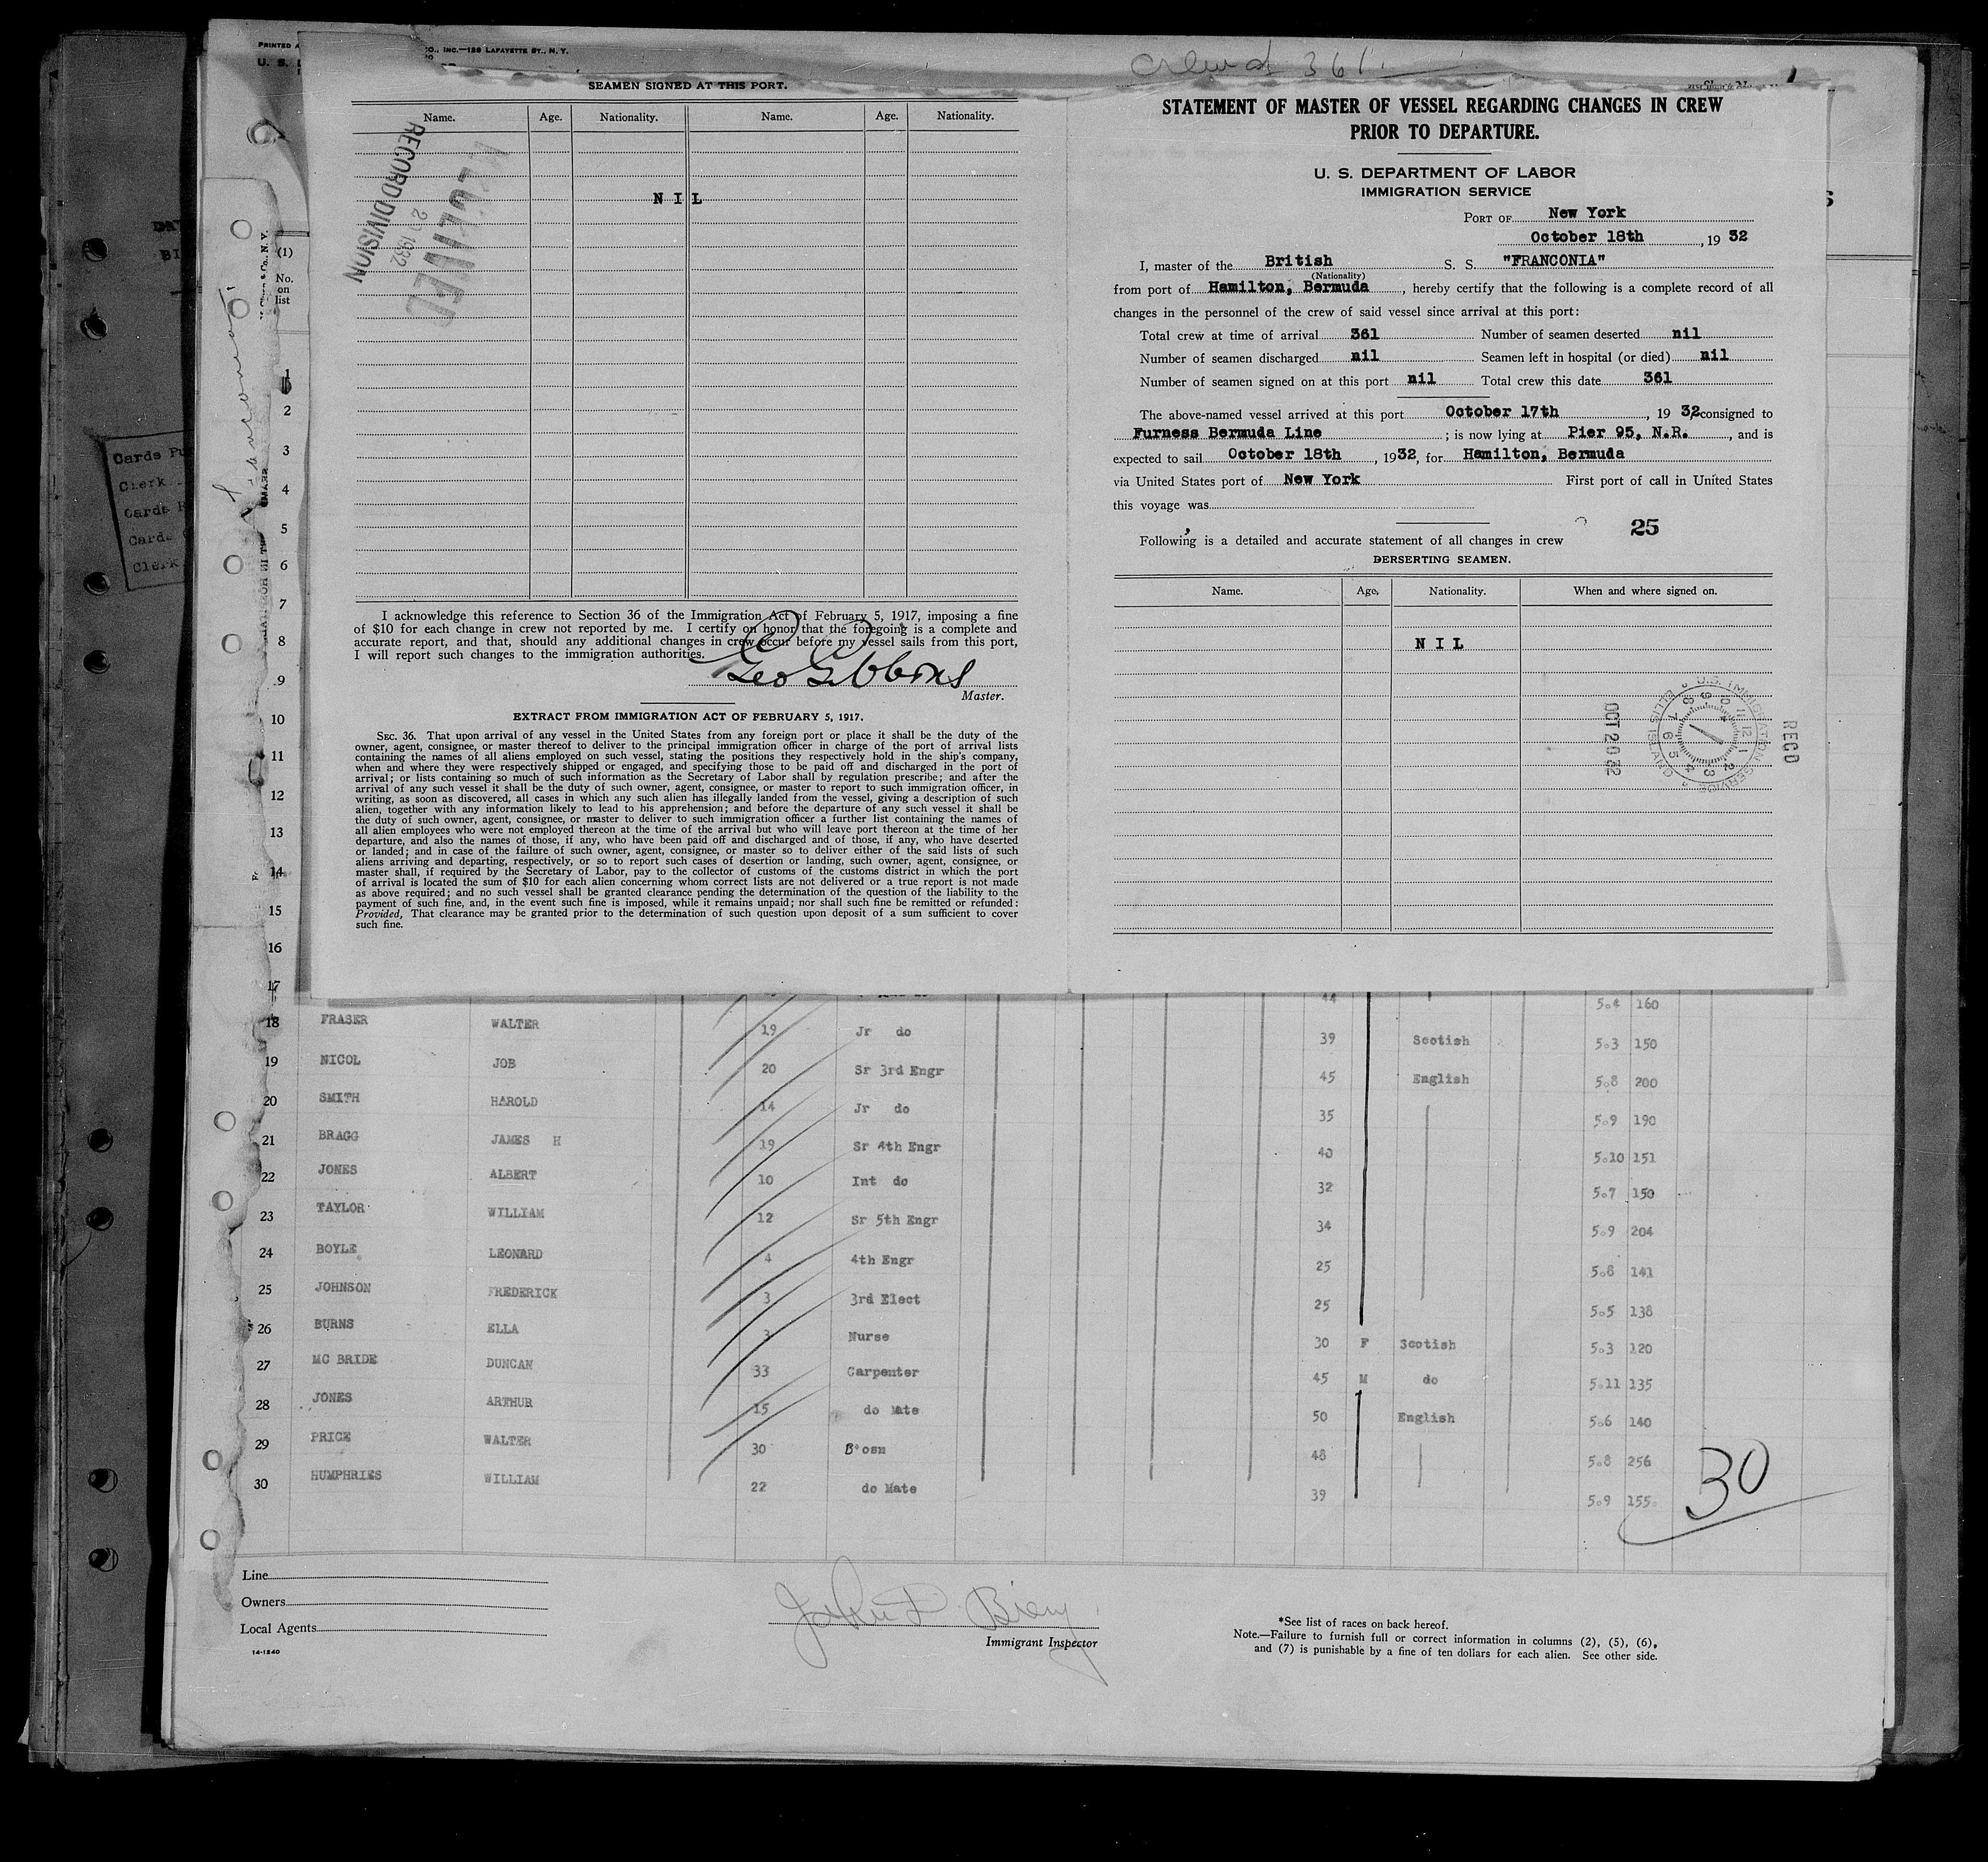 PRINTED A
CO., INC.—129 LAFAYETTE ST., N. Y.
U. S.
Crew 361
SEAMEN SIGNED AT THIS PORT.
Name. Age. Nationality. Name. Age. Nationality.
RECEIVED
2 1932
RECORD DIVISION
NIL
I acknowledge this reference to Section 36 of the Immigration Act of February 5, 1917, imposing a fine
of $10 for each change in crew not reported by me. I certify on honor that the foregoing is a complete and
accurate report, and that, should any additional changes in crew occur before my vessel sails from this port,
I will report such changes to the immigration authorities.
Geo Gibbons
Master.
EXTRACT FROM IMMIGRATION ACT OF FEBRUARY 5, 1917.
SEC. 36. That upon arrival of any vessel in the United States from any foreign port or place it shall be the duty of the
owner, agent, consignee, or master thereof to deliver to the principal immigration officer in charge of the port of arrival lists
containing the names of all aliens employed on such vessel, stating the positions they respectively hold in the ship's company,
when and where they were respectively shipped or engaged, and specifying those to be paid off and discharged in the port of
arrival; or lists containing so much of such information as the Secretary of Labor shall by regulation prescribe; and after the
arrival of any such vessel it shall be the duty of such owner, agent, consignee, or master to report to such immigration officer, in
writing, as soon as discovered, all cases in which any such alien has illegally landed from the vessel, giving a description of such
alien, together with any information likely to lead to his apprehension; and before the departure of any such vessel it shall be
the duty of such owner, agent, consignee, or master to deliver to such immigration officer a further list containing the names of
all alien employees who were not employed thereon at the time of the arrival but who will leave port thereon at the time of her
departure, and also the names of those, if any, who have been paid off and discharged and of those, if any, who have deserted
or landed; and in case of the failure of such owner, agent, consignee, or master so to deliver either of the said lists of such
aliens arriving and departing, respectively, or so to report such cases of desertion or landing, such owner, agent, consignee, or
master shall, if required by the Secretary of Labor, pay to the collector of customs of the customs district in which the port
of arrival is located the sum of $10 for each alien concerning whom correct lists are not delivered or a true report is not made
as above required; and no such vessel shall be granted clearance pending the determination of the question of the liability to the
payment of such fine, and, in the event such fine is imposed, while it remains unpaid; nor shall such fine be remitted or refunded:
Provided, That clearance may be granted prior to the determination of such question upon deposit of a sum sufficient to cover
such fine.
STATEMENT OF MASTER OF VESSEL REGARDING CHANGES IN CREW
PRIOR TO DEPARTURE.
U. S. DEPARTMENT OF LABOR
IMMIGRATION SERVICE
PORT OF New York
October 18th, 19 32
I, master of the British S. S. "FRANCONIA"
(Nationality)
from port of Hamilton, Bermuda, hereby certify that the following is a complete record of all
changes in the personnel of the crew of said vessel since arrival at this port:
Total crew at time of arrival 361 Number of seamen deserted nil
Number of seamen discharged nil Seamen left in hospital (or died) nil
Number of seamen signed on at this port nil Total crew this date 361
The above-named vessel arrived at this port October 17th, 19 32, consigned to
Furness Bermuda Line; is now lying at Pier 95, N.R., and is
expected to sail October 18th, 1932, for Hamilton, Bermuda
via United States port of New York First port of call in United States
this voyage was
25
Following is a detailed and accurate statement of all changes in crew
DERSERTING SEAMEN.
Name. Age, Nationality. When and where signed on.
NIL
REC'D
U.S. IMMIGRATION SERVICE
ELLIS ISLAND
OCT 20 32
Franconia
Cards Pu
Clerk
Cards
Cards
Clerk
(1)
No.
on
list
1
2
3
4
5
6
7
8
9
10
11
12
13
14
15
16
17 44 5.4 160
18 FRASER WALTER 19 Jr do 39 Scotish 5.3 150
19 NICOL JOB 20 Sr 3rd Engr 45 English 5.8 200
20 SMITH HAROLD 14 Jr do 35 5.9 190
21 BRAGG JAMES H 19 Sr 4th Engr 40 5.10 151
22 JONES ALBERT 10 Int do 32 5.7 150
23 TAYLOR WILLIAM 12 Sr 5th Engr 34 5.9 204
24 BOYLE LEONARD 4 4th Engr 25 5.8 141
25 JOHNSON FREDERICK 3 3rd Elect 25 5.5 138
26 BURNS ELLA 3 Nurse 30 F Scotish 5.3 120
27 MC BRIDE DUNCAN 33 Carpenter 45 M do 5.11 135
28 JONES ARTHUR 15 do Mate 50 English 5.6 140
29 PRICE WALTER 30 B'osn 48 5.8 256
30 HUMPHRIES WILLIAM 22 do Mate 39 5.9 155
30
Line
Owners
Local Agents
14-1240
John
Immigrant Inspector
*See list of races on back hereof.
Note.—Failure to furnish full or correct information in columns (2), (5), (6),
and (7) is punishable by a fine of ten dollars for each alien. See other side.